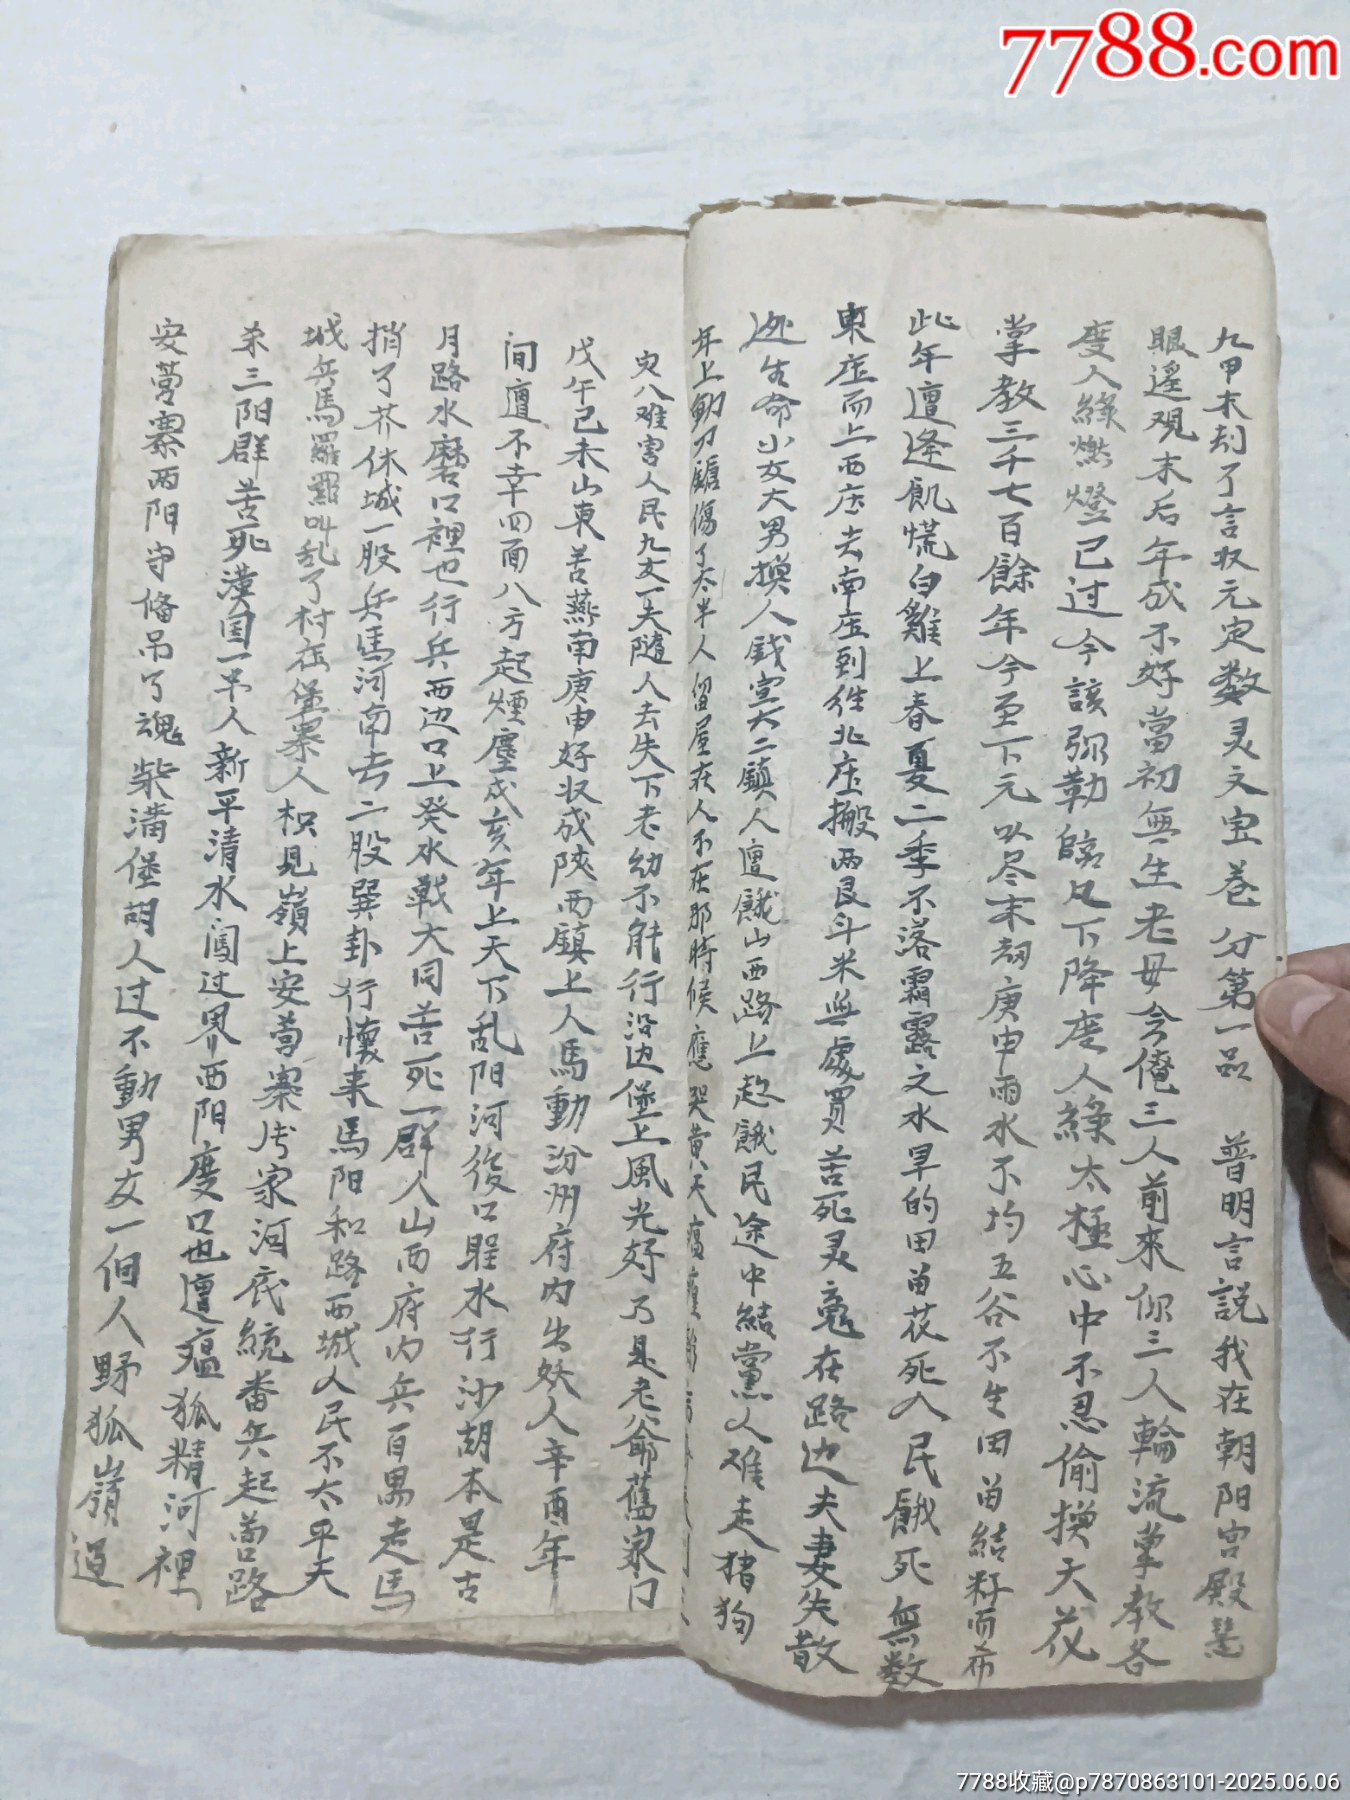 7788.com
九甲末刼了言収元定数灵文宝卷分第一品 普明言説我在朝阳宫殿慧
眼遥观末后年成不好當初無生老母令俺三人前來你三人輪流掌教各
度人緣燃燈已过今該弥勒臨凡下降度人緣太極心中不忍偷换天花
掌教三千七百餘年今至下元以尽末刼庚申雨水不均五谷不生田苗結籽而希
此年遭逢飢慌白雞上春夏二季不落霜露之水旱的田苗花死入民餓死無数
東庄而上西庄去南庄到徃北庄搬两艮斗米無處買苦死灵魂在路边夫妻失散
逃生命小女大男换人钱宣大二鎮人遭餓山西路上起餓民途中結黨人难走猪狗
年上動刀鎗傷了太半人留屋在人不在那時候應哭黄天瘟
灾八难害人民九女一夫隨人去失下老幼不能行沿边堡上風光好乃是老爺舊家门
戊午己未山東苦燕南庚申好収成陝西鎮上人馬動汾州府内出妖人辛酉年
间遭不幸四面八方起煙塵戌亥年上天下乱阳河後口眶水行沙胡本是古
月路水磨口裡也行兵西边口上癸水戰大同苦死一群人山西府内兵百萬走馬
捎了芥休城一股兵馬河南去二股巽卦行懷来馬阳和路西城人民不太平天
城兵馬羅羅叫乱了村庄堡寨人枳見嶺上安营寨张家河底統番兵起营路
杀三阳群苦死漢国一半人新平清水闖过界西阳度口也遭瘟狐精河裡
安营寨两阳守備吊了魂柴溝堡胡人过不動男女一個人野狐嶺過
7788收藏@p7870863101-2025.06.06